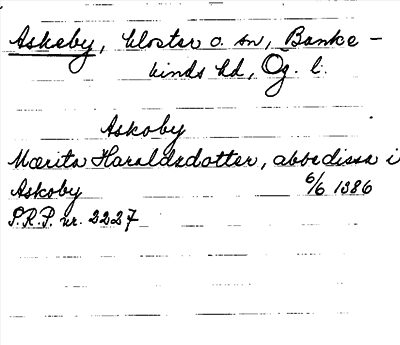 Askeby, kloster o. sn, Banke-
kinds hd, Ög. l.
Askoby
Mærita Haraldsdotter, abbedissa i
Askoby 6/6 1386
S.R.P. nr. 2227